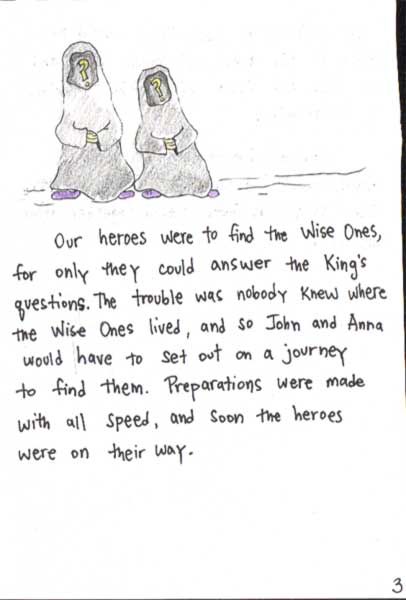 ?
?
Our heroes were to find the Wise Ones,
for only they could answer the King's
questions. The trouble was nobody knew where
the Wise Ones lived, and so John and Anna
would have to set out on a journey
to find them. Preparations were made
with all speed, and soon the heroes
were on their way.
3